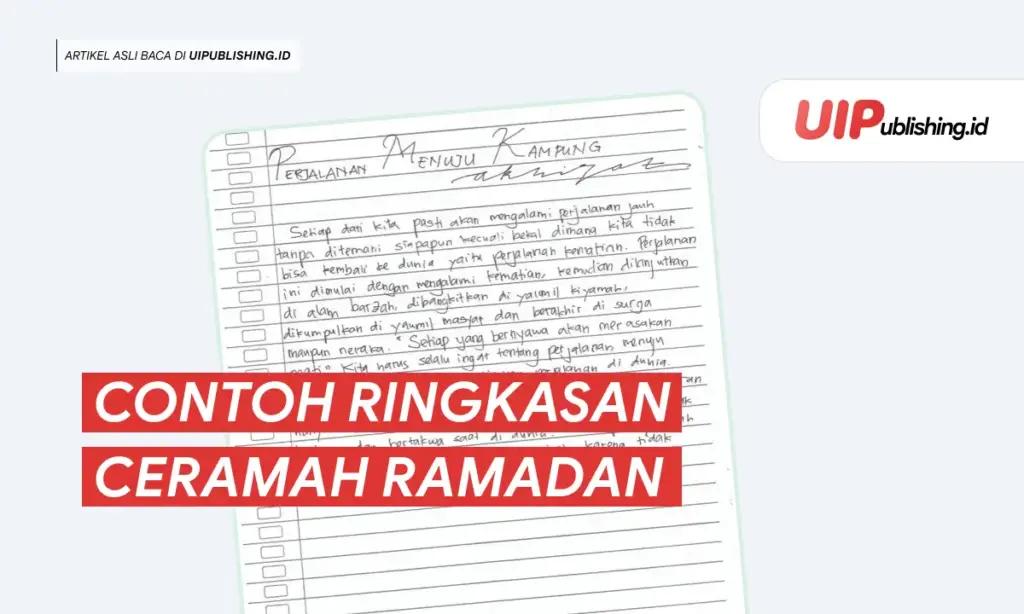 ARTIKEL ASLI BACA DI UIPUBLISHING.ID
UIPublishing.id
PERJALANAN MENUJU KAMPUNG
akhirat
Setiap dari kita pasti akan mengalami perjalanan jauh
tanpa ditemani siapapun kecuali bekal dimana kita tidak
bisa kembali ke dunia yaitu perjalanan kematian. Perjalanan
ini dimulai dengan mengalami kematian, kemudian dilanjutkan
di alam barzah, dibangkitkan di yaumil kiyamah,
dikumpulkan di yaumil masyar dan berakhir di surga
maupun neraka. "Setiap yang bernyawa akan merasakan
mati" Kita harus selalu ingat tentang perjalanan menuju
perjalanan di dunia.
CONTOH RINGKASAN
dan bertakwa saat di dunia.
karena tidak
CERAMAH RAMADAN